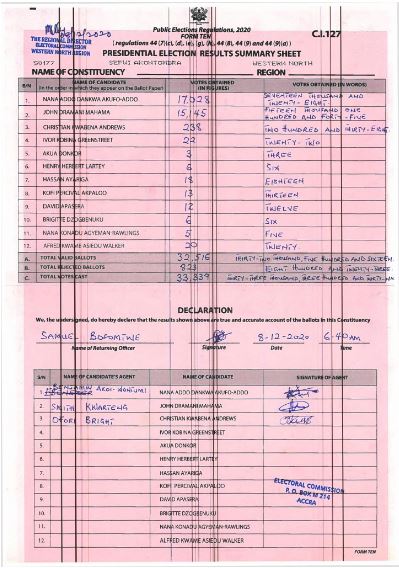 09/12/2020
THE REGIONAL DIRECTOR
ELECTORAL COMMISSION
WESTERN NORTH REGION
Public Elections Regulations, 2020
FORM TEN
C.I.127
(regulations 44 (7)(c), (d), (e), (g), (h), 44 (8), 44 (9) and 44 (9)(d))
PRESIDENTIAL ELECTION RESULTS SUMMARY SHEET
S0177 SEFWI AKONTOMBRA WESTERN NORTH
NAME OF CONSTITUENCY REGION
S/N NAME OF CANDIDATE (In the order in which they appear on the Ballot Paper) VOTES OBTAINED (IN FIGURES) VOTES OBTAINED (IN WORDS)
1. NANA ADDO DANKWA AKUFO-ADDO 17,028 SEVENTEEN THOUSAND AND TWENTY-EIGHT
2. JOHN DRAMANI MAHAMA 15,145 FIFTEEN THOUSAND ONE HUNDRED AND FORTY-FIVE
3. CHRISTIAN KWABENA ANDREWS 238 TWO HUNDRED AND THIRTY-EIGHT
4. IVOR KOBINA GREENSTREET 22 TWENTY-TWO
5. AKUA DONKOR 3 THREE
6. HENRY HERBERT LARTEY 6 SIX
7. HASSAN AYARIGA 18 EIGHTEEN
8. KOFI PERCIVAL AKPALOO 13 THIRTEEN
9. DAVID APASERA 12 TWELVE
10. BRIGITTE DZOGBENUKU 6 SIX
11. NANA KONADU AGYEMAN-RAWLINGS 5 FIVE
12. ALFRED KWAME ASIEDU WALKER 20 TWENTY
A. TOTAL VALID BALLOTS 32,516 THIRTY-TWO THOUSAND, FIVE HUNDRED AND SIXTEEN
B. TOTAL REJECTED BALLOTS 823 EIGHT HUNDRED AND TWENTY-THREE
C. TOTAL VOTES CAST 33,339 THIRTY-THREE THOUSAND, THREE HUNDRED AND THIRTY-NINE
DECLARATION
We, the undersigned, do hereby declare that the results shown above are true and accurate account of the ballots in this Constituency
SAMUEL 8-12-2020 6:40AM
Name of Returning Officer Signature Date Time
S/N NAME OF CANDIDATE'S AGENT NAME OF CANDIDATE SIGNATURE OF AGENT
1. BENJAMIN NANA ADDO DANKWA AKUFO-ADDO
2. SMITH KWARTENG JOHN DRAMANI MAHAMA
3. OFORI BRIGHT CHRISTIAN KWABENA ANDREWS
4. IVOR KOBINA GREENSTREET
5. AKUA DONKOR
6. HENRY HERBERT LARTEY
7. HASSAN AYARIGA
8. KOFI PERCIVAL AKPALOO
9. DAVID APASERA
10. BRIGITTE DZOGBENUKU
11. NANA KONADU AGYEMAN-RAWLINGS
12. ALFRED KWAME ASIEDU WALKER
ELECTORAL COMMISSION
P. O. BOX M 214
ACCRA
FORM TEN